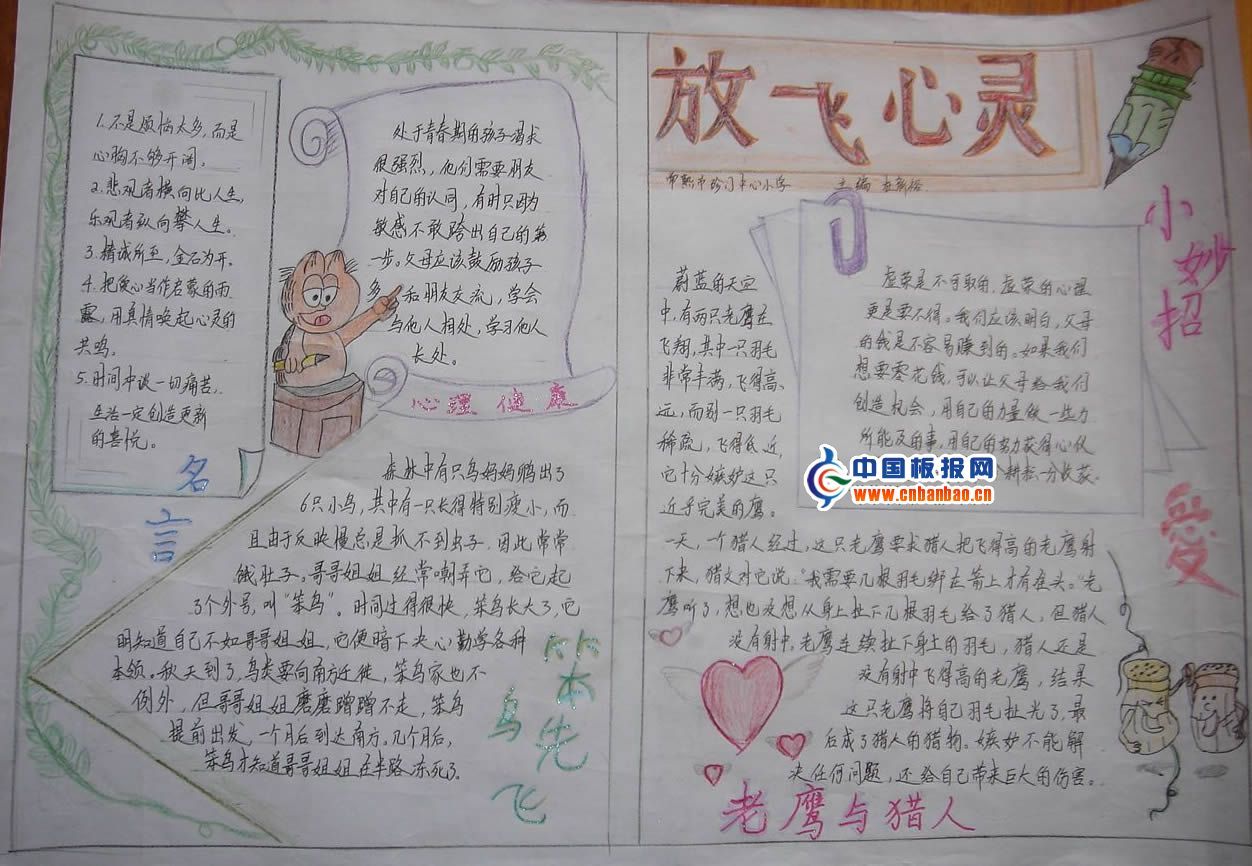 1.不是烦恼太多,而是
心胸不够开阔。
2.悲观者横向比人生,
乐观者纵向攀人生。
3.精诚所至,金石为开。
4.把爱心当作启蒙的雨
露,用真情唤起心灵的
共鸣。
5.时间冲淡一切痛苦.
生活一定创造更新
的喜悦。
名言
处于青春期的孩子渴求
很强烈,他们需要朋友
对自己的认同,有时只因为
敏感不敢跨出自己的第
一步。父母应该鼓励孩子
多 和朋友交流,学会
与他人相处,学习他人
长处。
心理健康
森林中有只鸟妈妈孵出了
6只小鸟,其中有一只长得特别瘦小,而
且由于反映慢总是抓不到虫子.因此常常
饿肚子。哥哥姐姐经常嘲弄它,给它起
了个外号,叫“笨鸟”。时间过得很快,笨鸟长大了,它
明知道自己不如哥哥姐姐,它便暗下决心勤学各种
本领。秋天到了,鸟类要向南方迁徙,笨鸟家也不
例外,但哥哥姐姐磨磨蹭蹭不走,笨鸟
提前出发,一个月后到达南方。几个月后,
笨鸟才知道哥哥姐姐在半路冻死了.
笨鸟先飞
放飞心灵
常熟市 门中心小学 主编
小妙招
虚荣是不可取的.虚荣的心理
更是要不得。我们应该明白,父母
的钱是不容易赚到的。如果我们
想要零花钱,可以让父母给我们
创造机会,用自己的力量做一些力
所能及的事,用自己的努力获得心仪
耕耘一分收获。
中国板报网
www.cnbanbao.cn
爱
蔚蓝的天空
中,有两只老鹰在
飞翔,其中一只羽毛
非常丰满,飞得高、
远,而别一只羽毛
稀疏,飞得低、近,
它十分嫉妒这只
近乎完美的鹰。
一天,一个猎人经过,这只老鹰要求猎人把飞得高的老鹰射
下来,猎人对它说:“我需要几根羽毛绑在箭上才有准头。”老
鹰听了,想也没想从身上扯下几根羽毛给了猎人,但猎人
没有射中,老鹰连续扯下身上的羽毛,猎人还是
没有射中飞得高的老鹰,结果
这只老鹰将自己羽毛扯光了,最
后成了猎人的猎物。嫉妒不能解
决任何问题,还给自己带来巨大的伤害。
老鹰与猎人